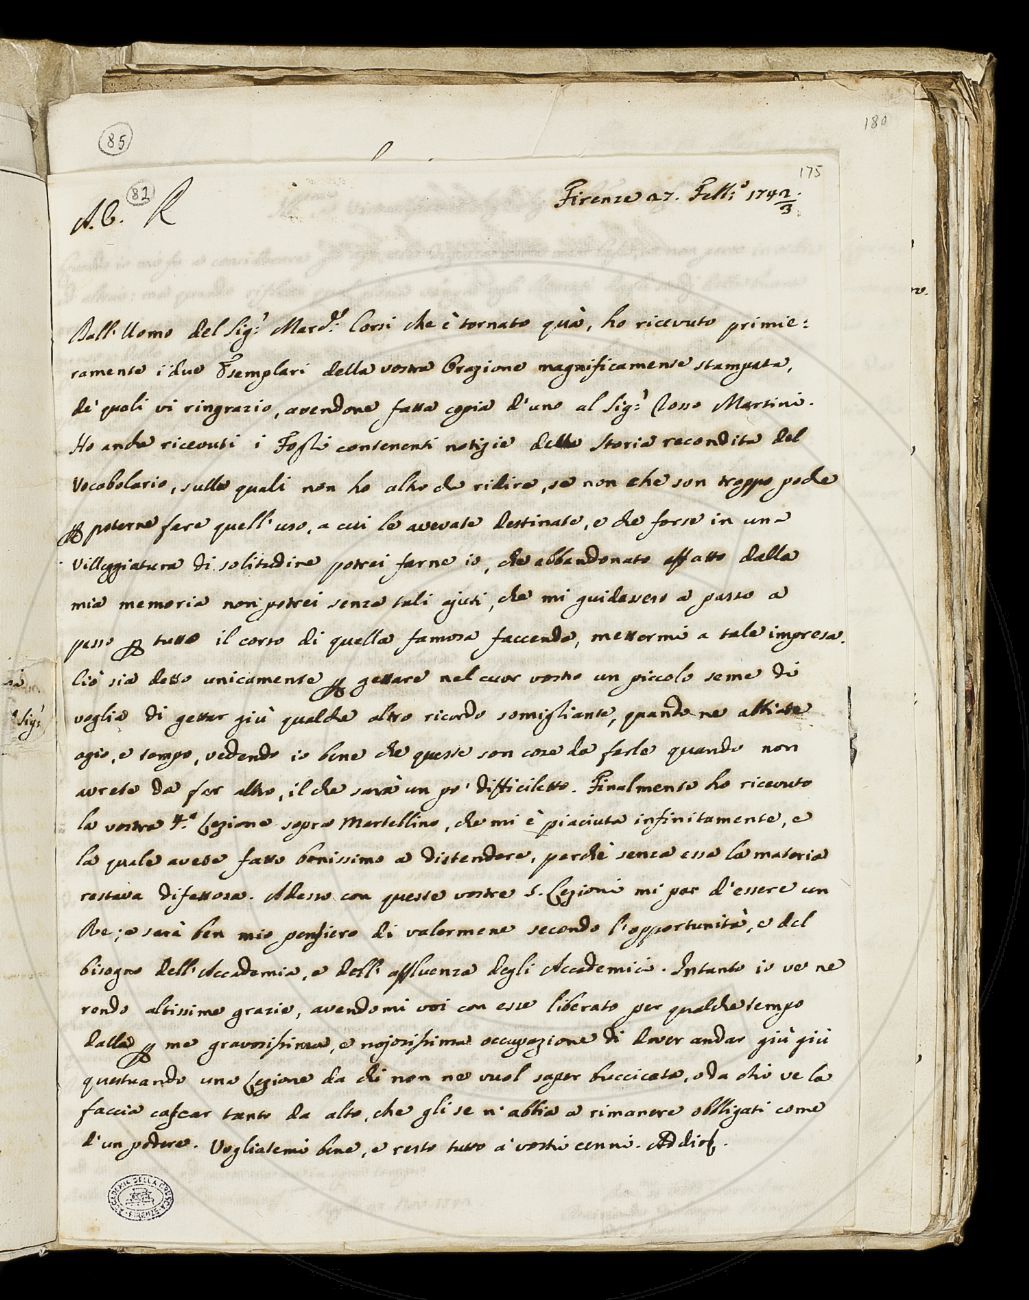 85
180
175
82
A. C. R
Firenze 27. Febb.º 174 2/3.
Dall'Uomo del Sig.r Marc. Corsi che è tornato quà, ho ricevuto primie:
ramente i due Esemplari della vostra Orazione magnificamente stampata,
de' quali vi ringrazio, avendone fatta copia d'uno al Sig.r Rosso Martini.
Ho anche ricevuti i Fogli contenenti notizie della storia recondita del
Vocabolario, sulle quali non ho altro che ridire, se non che son troppo poche
p poterne fare quell'uso, a cui le avevate destinate, e che forse in una
villeggiatura di solitudine potrei farne io, che abbandonato affatto dalla
mia memoria non potrei senza tali ajuti, che mi guidassero a passo a
passo p tutto il corso di quella famosa faccenda, mettermi a tale impresa.
Ciò sia detto unicamente p gettare nel cuor vostro un piccolo seme di
voglia di gettar giù qualche altro ricordo somigliante, quando ne abbiate
agio, e tempo, vedendo io bene che queste son cose da farle quando non
avrete da far altro, il che sarà un po' difficiletto. Finalmente ho ricevuto
la vostra 4.a Lezione sopra Martellino, che mi è piaciuta infinitamente, e
la quale avete fatto benissimo a distendere, perchè senza essa la materia
restava difettosa. Adesso con queste vostre 5. Lezioni mi par d'essere un
Re; e sarà ben mio pensiero di valermene secondo l'opportunità, e del
bisogno dell'Accademia, e dell'affluenza degli Accademici. Intanto io ve ne
rendo altissime grazie, avendomi voi con esse liberato per qualche tempo
dalla p me gravosissima, e nojosissima occupazione di dover andar giù giù
questuando una Lezione da chi non ne vuol saper buccicata, o da chi ve la
faccia cascar tanto da alto, che gli se n'abbia a rimanere obbligati come
d'un podere. Vogliatemi bene, e resto tutto a' vostri cenni. Addio.
ACCADEMIA DELLA CRUSCA
FIRENZE
Sig.r